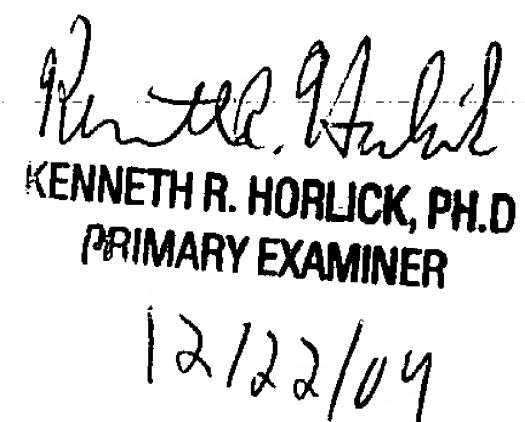 Kenneth R. Horlick
KENNETH R. HORLICK, PH.D
PRIMARY EXAMINER
12/22/04